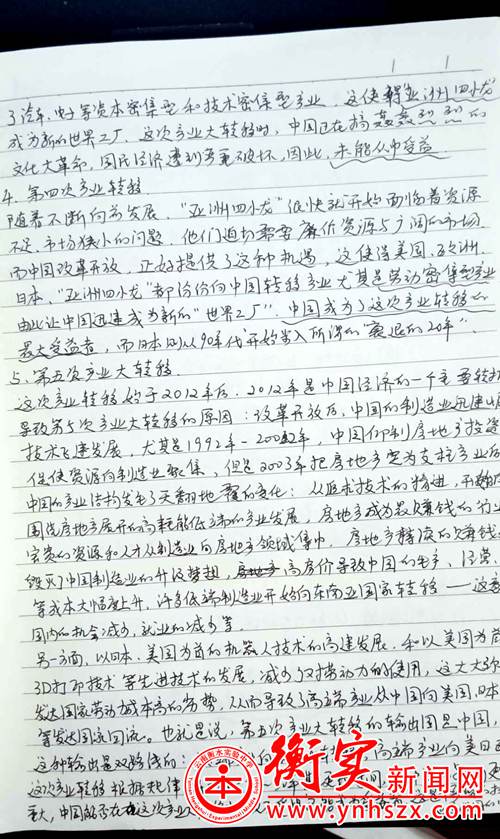 了汽车、电子等资本密集型和技术密集型产业,这使得亚洲四小龙
成为新的世界工厂。这次产业大转移时,中国正在搞轰轰烈烈的
文化大革命,国民经济遭到严重破坏,因此,未能从中受益
4、第四次产业转移
随着不断向前发展,"亚洲四小龙"很快就开始面临着资源
不足、市场狭小的问题,他们迫切需要廉价资源与广阔的市场
而中国改革开放,正好提供了这种机遇,这使得美国、欧洲、
日本、"亚洲四小龙"都纷纷向中国转移产业尤其是劳动密集型产业
由此让中国迅速成为新的"世界工厂"。中国成为了这次产业转移的
最大受益者,而日本则从90年代开始步入所谓的"衰退的20年"。
5、第五次产业大转移
这次产业转移始于2012年后,2012年是中国经济的一个主要转折
导致第5次产业大转移的原因:改革开放后,中国的制造业迅速
技术飞速发展,尤其是1992年-2002年,中国
促使资源向制造业聚集,但是2003年把房地产定为支柱产业后
中国的产业结构发生了天翻地覆的变化:从追求技术的精进,
围绕房地产展开的高耗能低端的产业发展,房地产成为最赚钱的行业
宝贵的资源和人才从制造业向房地产领域集中,房地产
毁灭了中国制造业的升级梦想,高房价导致中国的生产、经营、
等成本大幅度上升,许多低端制造业开始向东南亚国家转移——这
国内的机会减少,就业的减少等。
另一方面,以日本、美国为首的机器人技术的高速发展,和以美国为首
3D打印技术等先进技术的发展,减少了对劳动力的使用,这大大
发达国家劳动成本高的劣势,从而导致了高端产业从中国向美国、日本
等发达国家回流。也就是说,第五次产业大转移的输出国是中国,
这种输出是双路线的:高端产业向美日
这次产业转移根据规律
重大,中国能否在这次产业
云南衡水实验中学
衡实新闻网
www.ynhszx.com